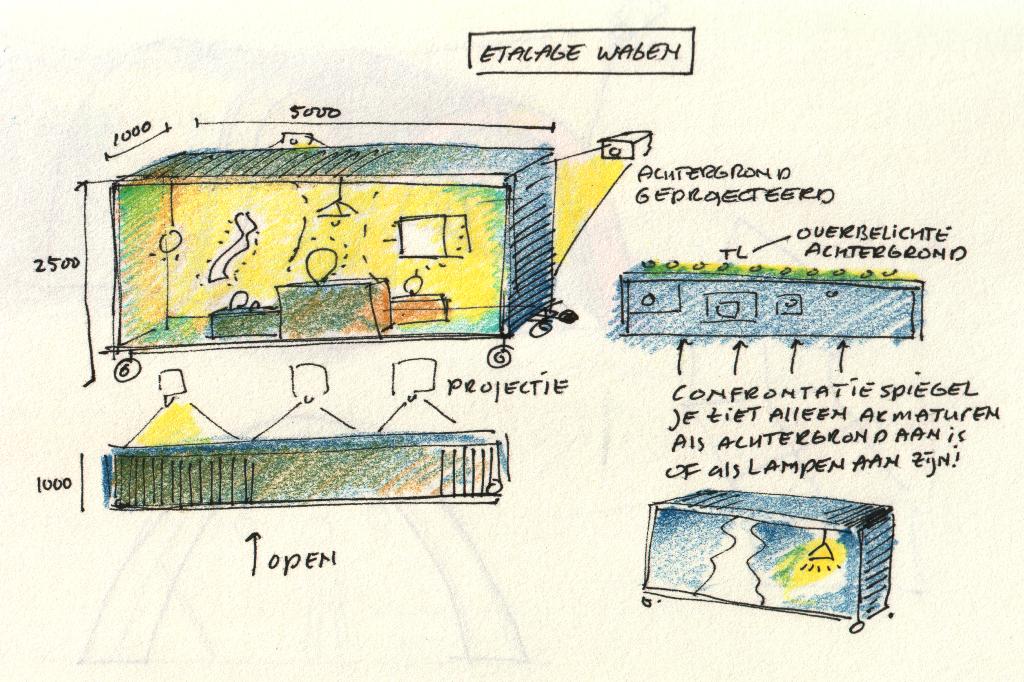 ETALAGE WAGEN
5000
1000
ACHTERGROND
GEPROJECTEERD
2500
TL
OVERBELICHTE
ACHTERGROND
PROJECTIE
CONFRONTATIESPIEGEL
JE ZIET ALLEEN ARMATUREN
ALS ACHTERGROND AAN is
OF als LAMPEN AAN ZIJN!
1000
OPEN